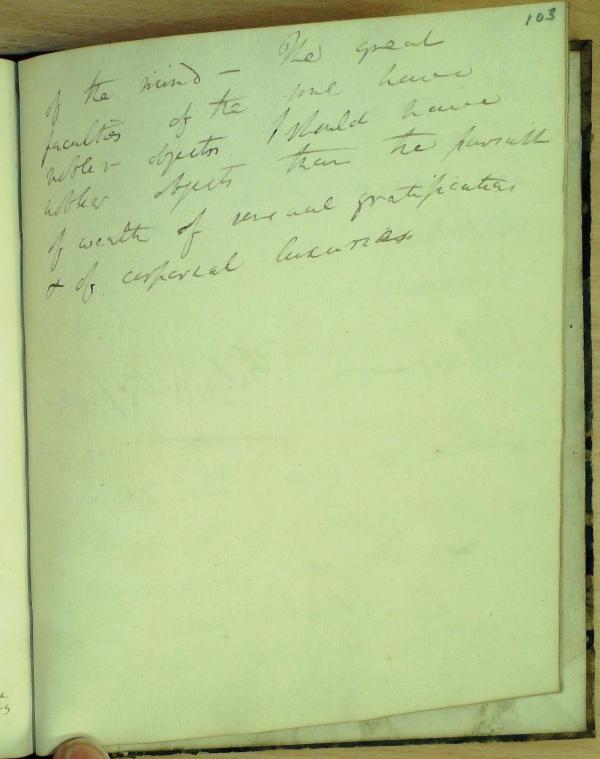 103
of the mind – The great
faculties of the soul have
nobler objects / should have
nobler objects than the pursuit
of wealth of sensual gratification
& of corporeal luxuries